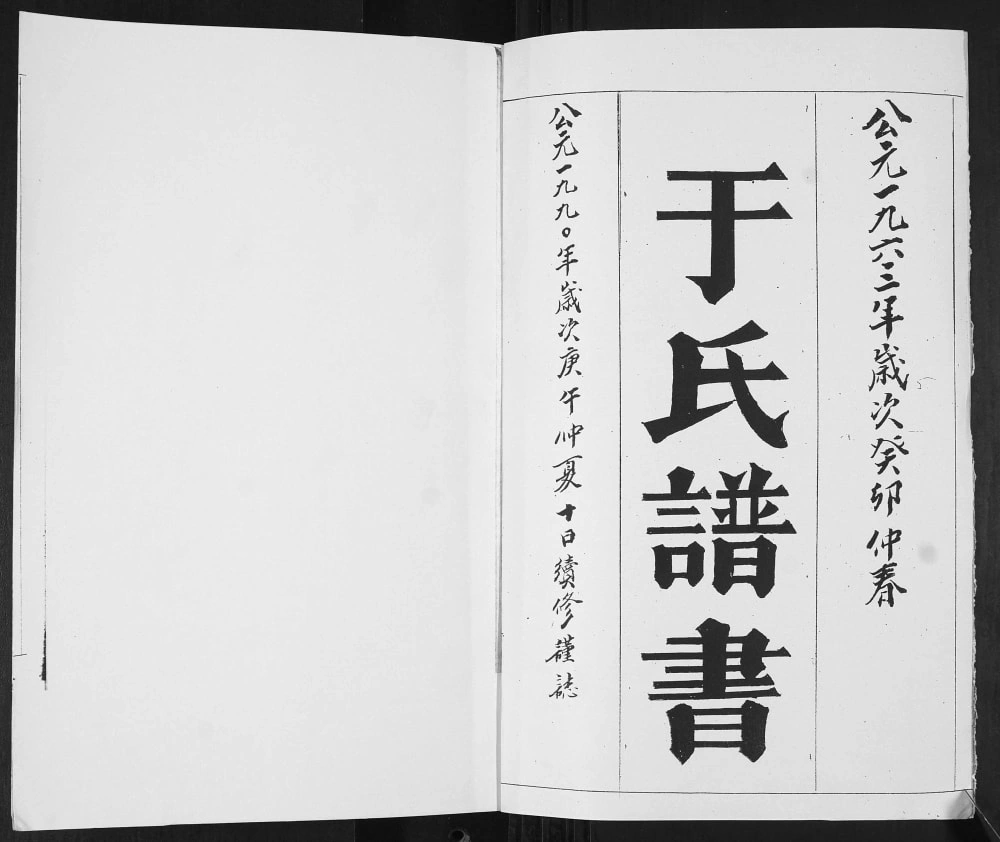 公元一九六三年歲次癸卯仲春
于氏譜書
公元一九九〇年歲次庚午仲夏十日續修謹誌